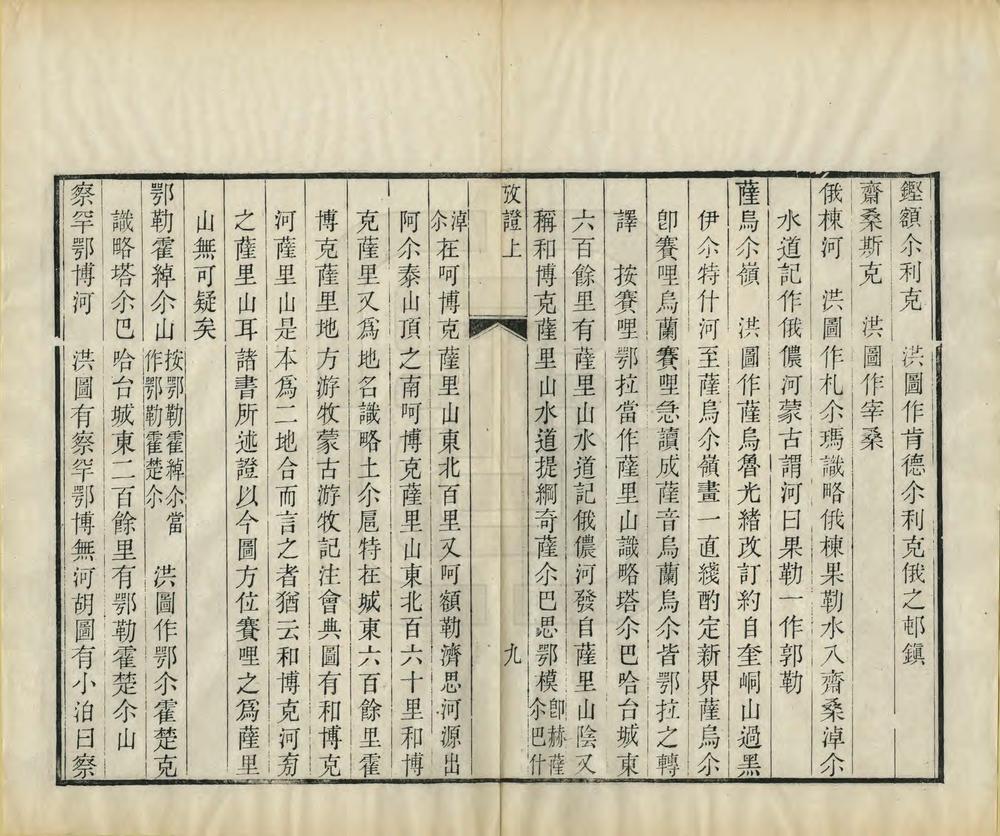 鏗額尒利克　洪圖作肯德尒利克俄之邨鎮
齋桑斯克　洪圖作宰桑
俄棟河　洪圖作札尒瑪識略俄棟果勒水入齋桑淖尒
水道記作俄儂河蒙古謂河曰果勒一作郭勒
薩烏尒嶺　洪圖作薩烏魯光緒改訂約自奎峒山過黑
伊尒特什河至薩烏尒嶺畫一直綫酌定新界薩烏尒
卽賽哩烏蘭賽哩急讀成薩音烏蘭烏尒皆鄂拉之轉
譯　按賽哩鄂拉當作薩里山識略塔尒巴哈台城東
六百餘里有薩里山水道記俄儂河發自薩里山陰又
稱和博克薩里山水道提綱奇薩尒巴思鄂模卽赫薩尒巴什
攷證上　九
淖尒在呵博克薩里山東北百里又呵額勒濟思河源出
阿尒泰山頂之南呵博克薩里山東北百六十里和博
克薩里又爲地名識略土尒扈特在城東六百餘里霍
博克薩里地方游牧蒙古游牧記注會典圖有和博克
河薩里山是本爲二地合而言之者猶云和博克河旁
之薩里山耳諸書所述證以今圖方位賽哩之爲薩里
山無可疑矣
鄂勒霍綽尒山　按鄂勒霍綽尒當作鄂勒霍楚尒　洪圖作鄂尒霍楚克
識略塔尒巴哈台城東二百餘里有鄂勒霍楚尒山
察罕鄂博河　洪圖有察罕鄂博無河胡圖有小泊曰察